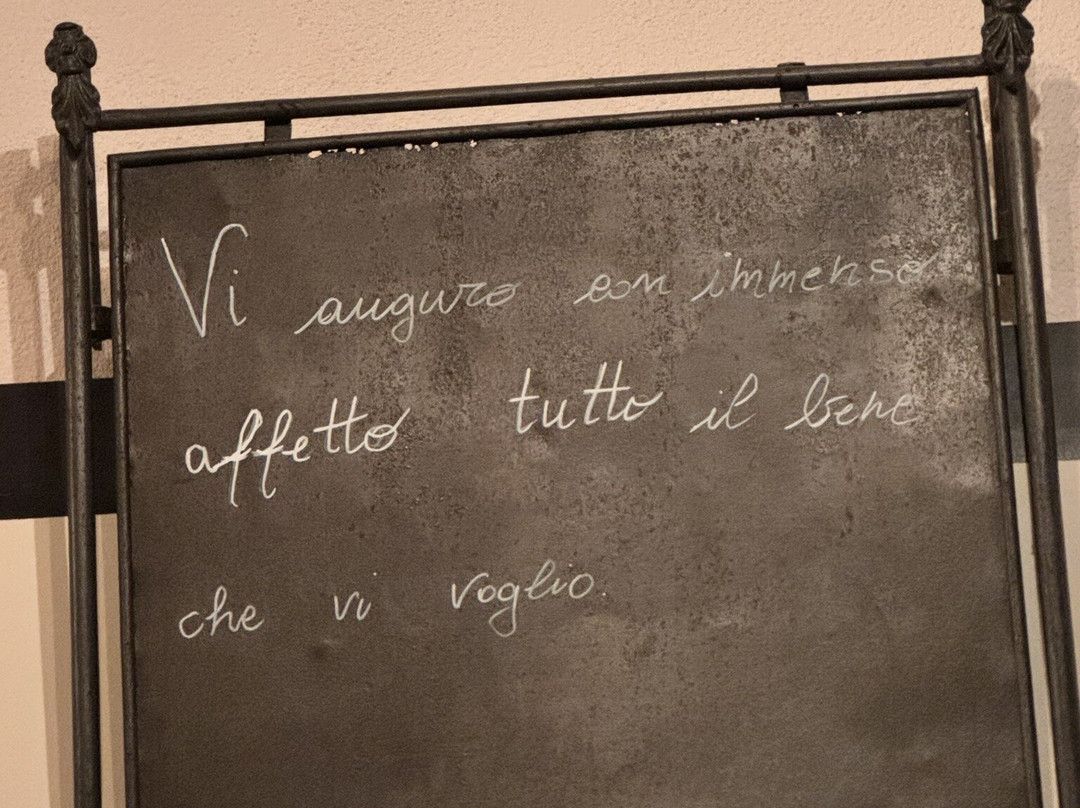 Vi auguro con immenso
affetto tutto il bene
che vi voglio.